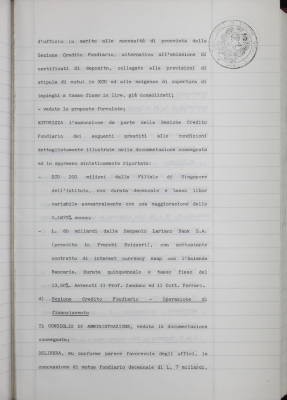 d'ufficio in merito alle necessità di provvista della
Sezione Credito Fondiario, alternativa all'emissione di
certificati di deposito, collegate alle previsioni di
stipula di mutui in ECU ed alle esigenze di copertura di
impieghi a tasso fisso in lire, già consolidati;
- vedute le proposte formulate;
AUTORIZZA l'assunzione da parte della Sezione Credito
Fondiario dei seguenti prestiti alle condizioni
dettagliatamente illustrate nella documentazione consegnata
ed in appresso sinteticamente riportate:
- ECU 200 milioni dalla Filiale di Singapore
dell'Istituto, con durata decennale e tasso libor
variabile semestralmente con una maggiorazione dello
annuo;
- L. 60 miliardi dalla Sanpaolo Lariano Bank S.A.
(provvista in Franchi Svizzeri), con sottostante
contratto di interest currency swap con l'Azienda
Bancaria, durata quinquennale e tasso fisso del
Astenuti il Prof. Zandano ed il Dott. Ferrari.
d) Sezione Credito Fondiario - Operazione di
finanziamento
IL CONSIGLIO DI AMMINISTRAZIONE, veduta la documentazione
consegnata;
DELIBERA, su conforme parere favorevole degli uffici, la
concessione di mutuo fondiario decennale di L. 7 miliardi,